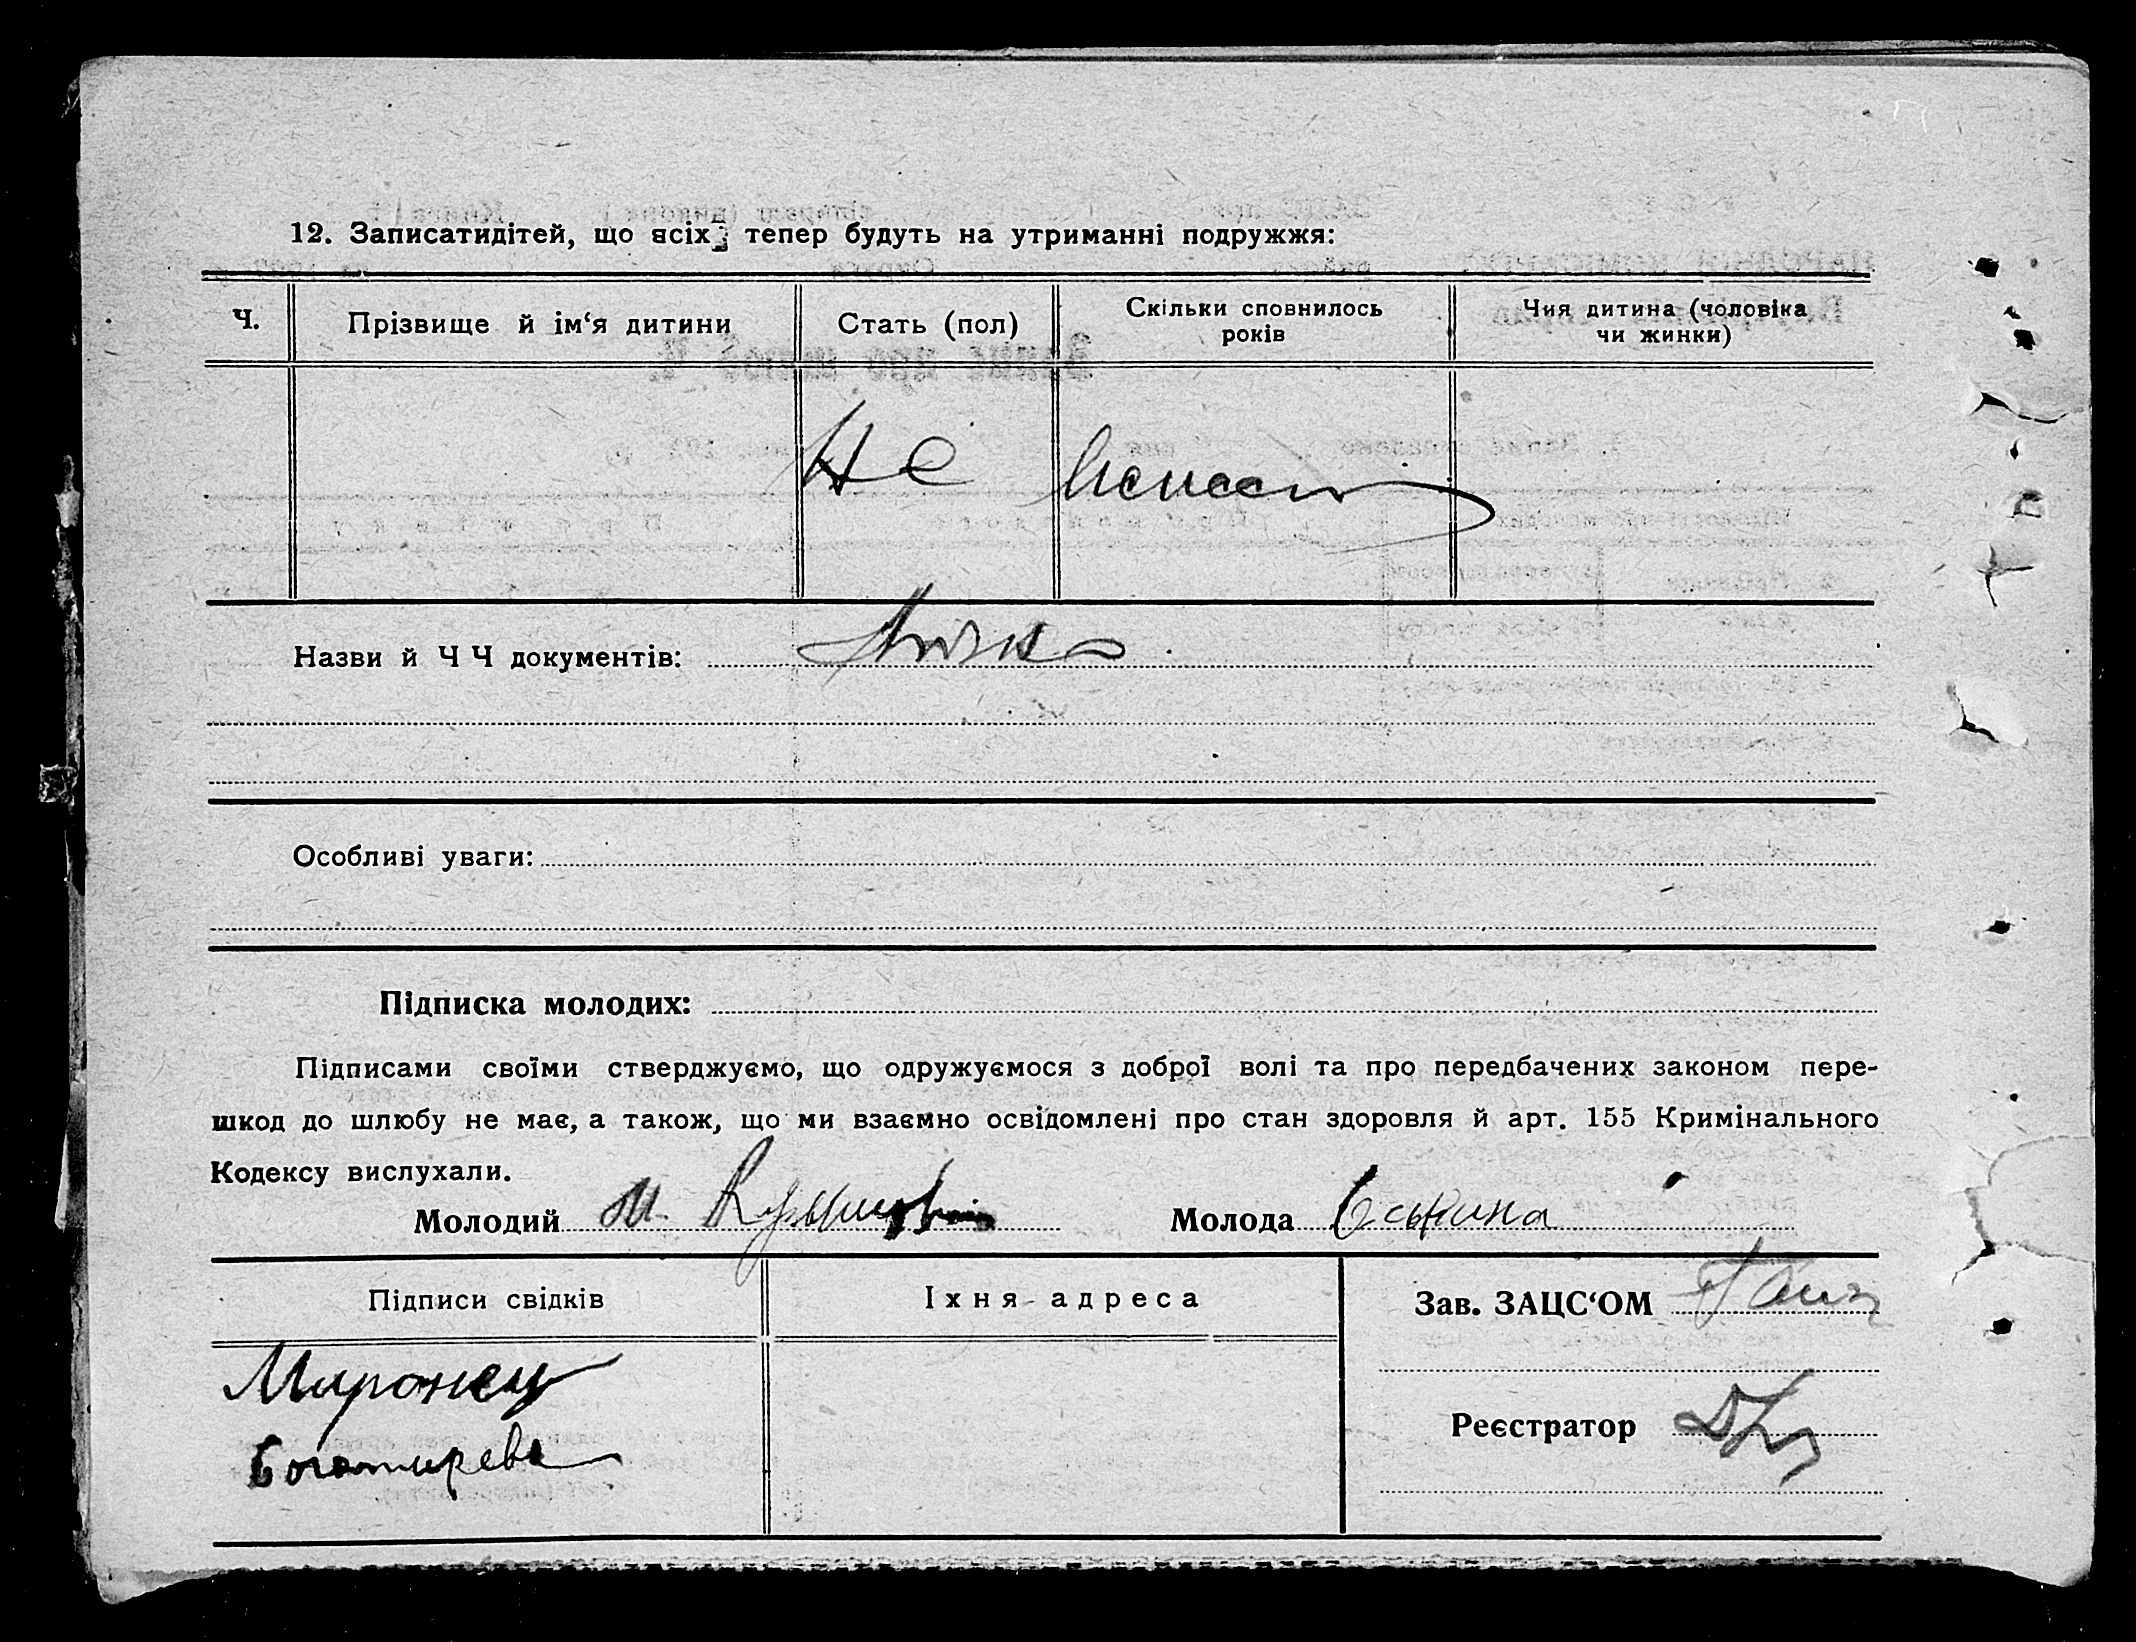 12. Записатидітей, що всіх тепер будуть на утриманні подружжя:
Ч.
Прізвище й ім‘я дитини
Стать (пол)
Скільки сповнилось
років
Чия дитина (чоловіка
чи жинки)
Не
Назви й Ч Ч документів:
Особливі уваги:
Підписка молодих:
Підписами своїми стверджуємо, що одружуємося з доброї волі та про передбачених законом пере-
шкод до шлюбу не має, а також, що ми взаємно освідомлені про стан здоровля й арт. 155 Кримінального
Кодексу вислухали.
Молодий М.
Молода Еськина
Підписи свідків
Їхня адреса
Зав. ЗАЦС‘ОМ
Миронец
Реєстратор
Богатирева